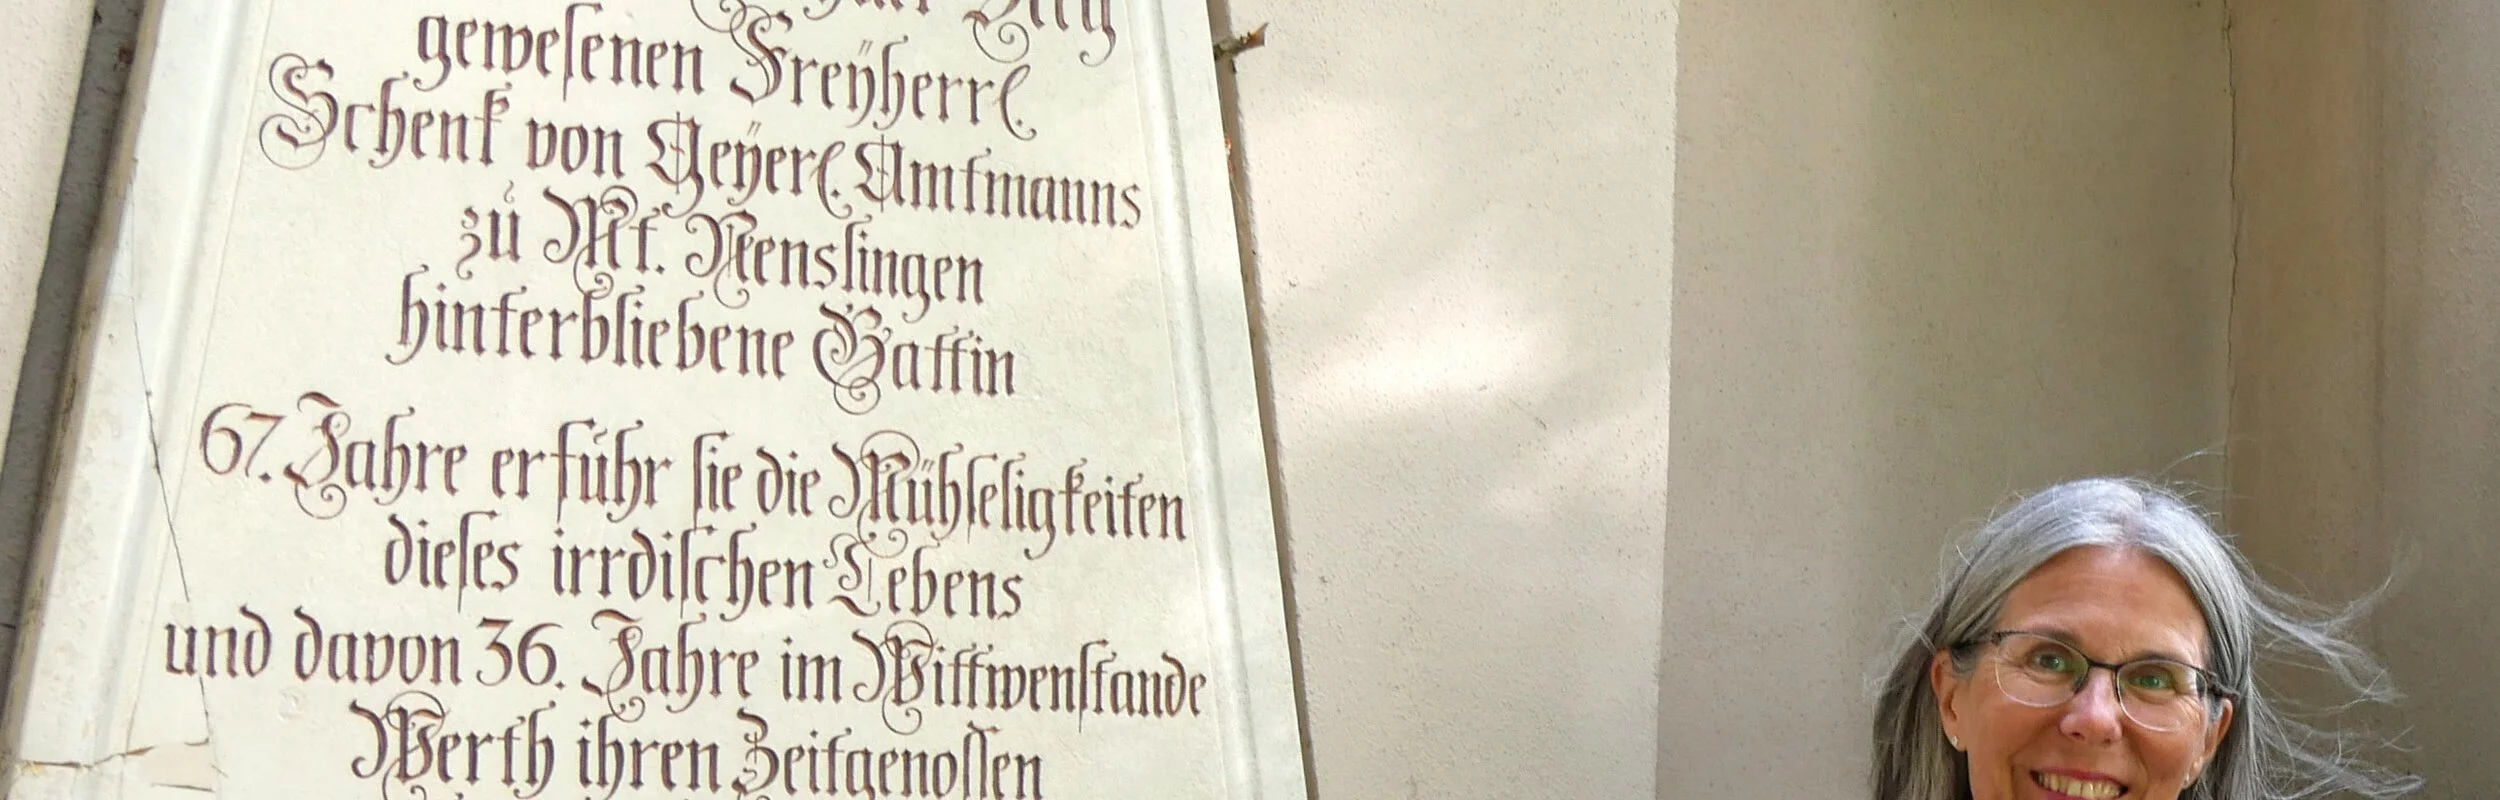 gewesenen Freÿherrl.
Schenk von Geÿerl. Amtmanns
zu Mt. Nenslingen
hinterbliebene Gattin
67. Jahre erfuhr sie die Mühseligkeiten
dieses irrdischen Lebens
und davon 36. Jahre im Wittwenstande
Werth ihren Zeitgenossen